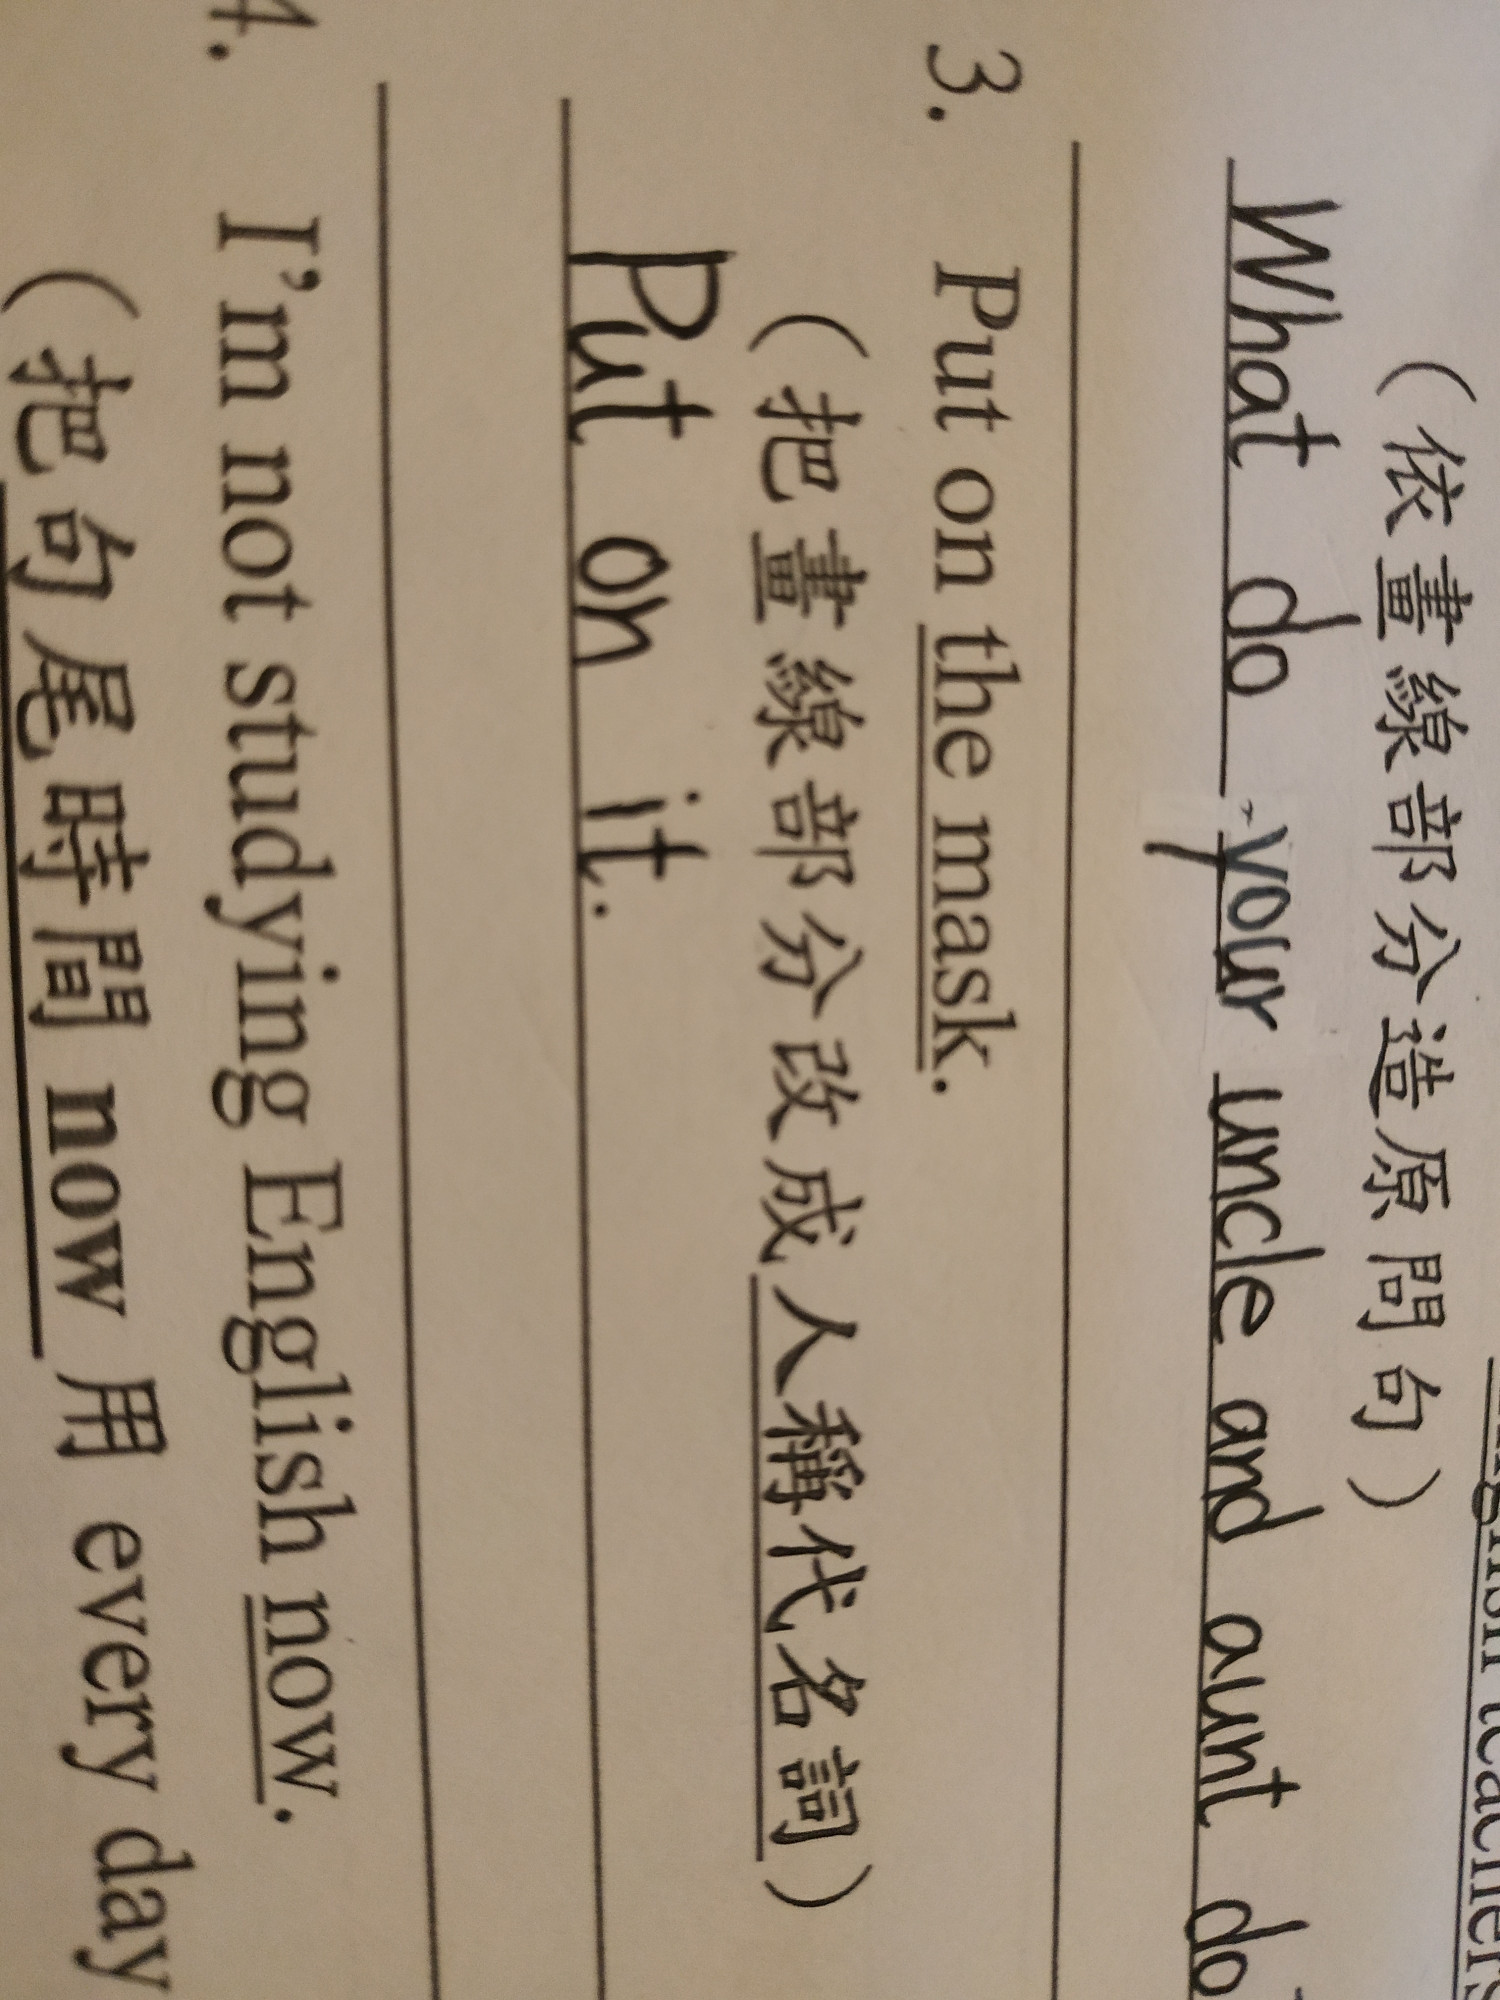 English teachers
（依畫線部分造原問句）
What do your uncle and aunt do
3. Put on the mask.
（把畫線部分改成人稱代名詞）
Put on it.
4. I'm not studying English now.
（把句尾時間 now 用 every day